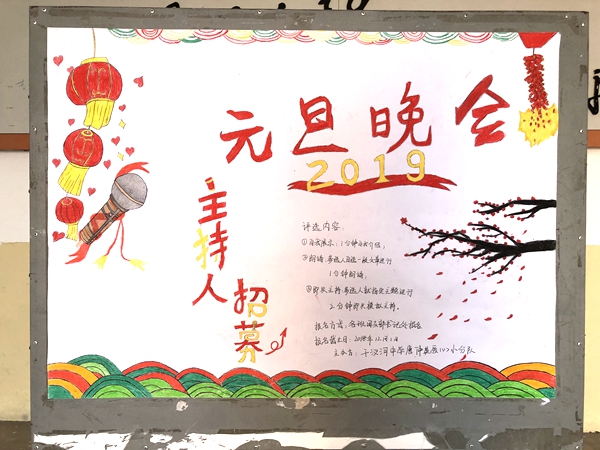 元旦晚会
2019
主持人
招募
评选内容:
①自我展示:1分钟自我介绍;
②朗诵:易选人自选一段文章进行
1分钟朗诵;
③即兴主持:易选人就指定主题进行
2分钟即兴模拟主持。
报名方式:各班团支部书记处报名
报名截止日:2018年12月
主办方: